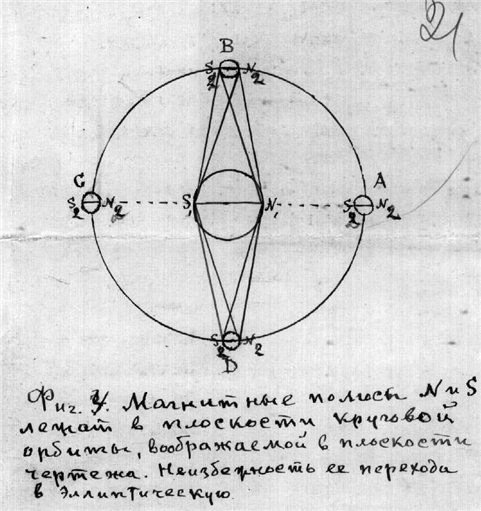 21
B
S2 N2
C A
S2 N2 S1 N1 S2 N2
S2 N2
D
Фиг. 4. Магнитные полюсы N и S
лежат в плоскости круговой
орбиты, воображаемой в плоскости
чертежа. Неизбежность ее перехода
в эллиптическую.